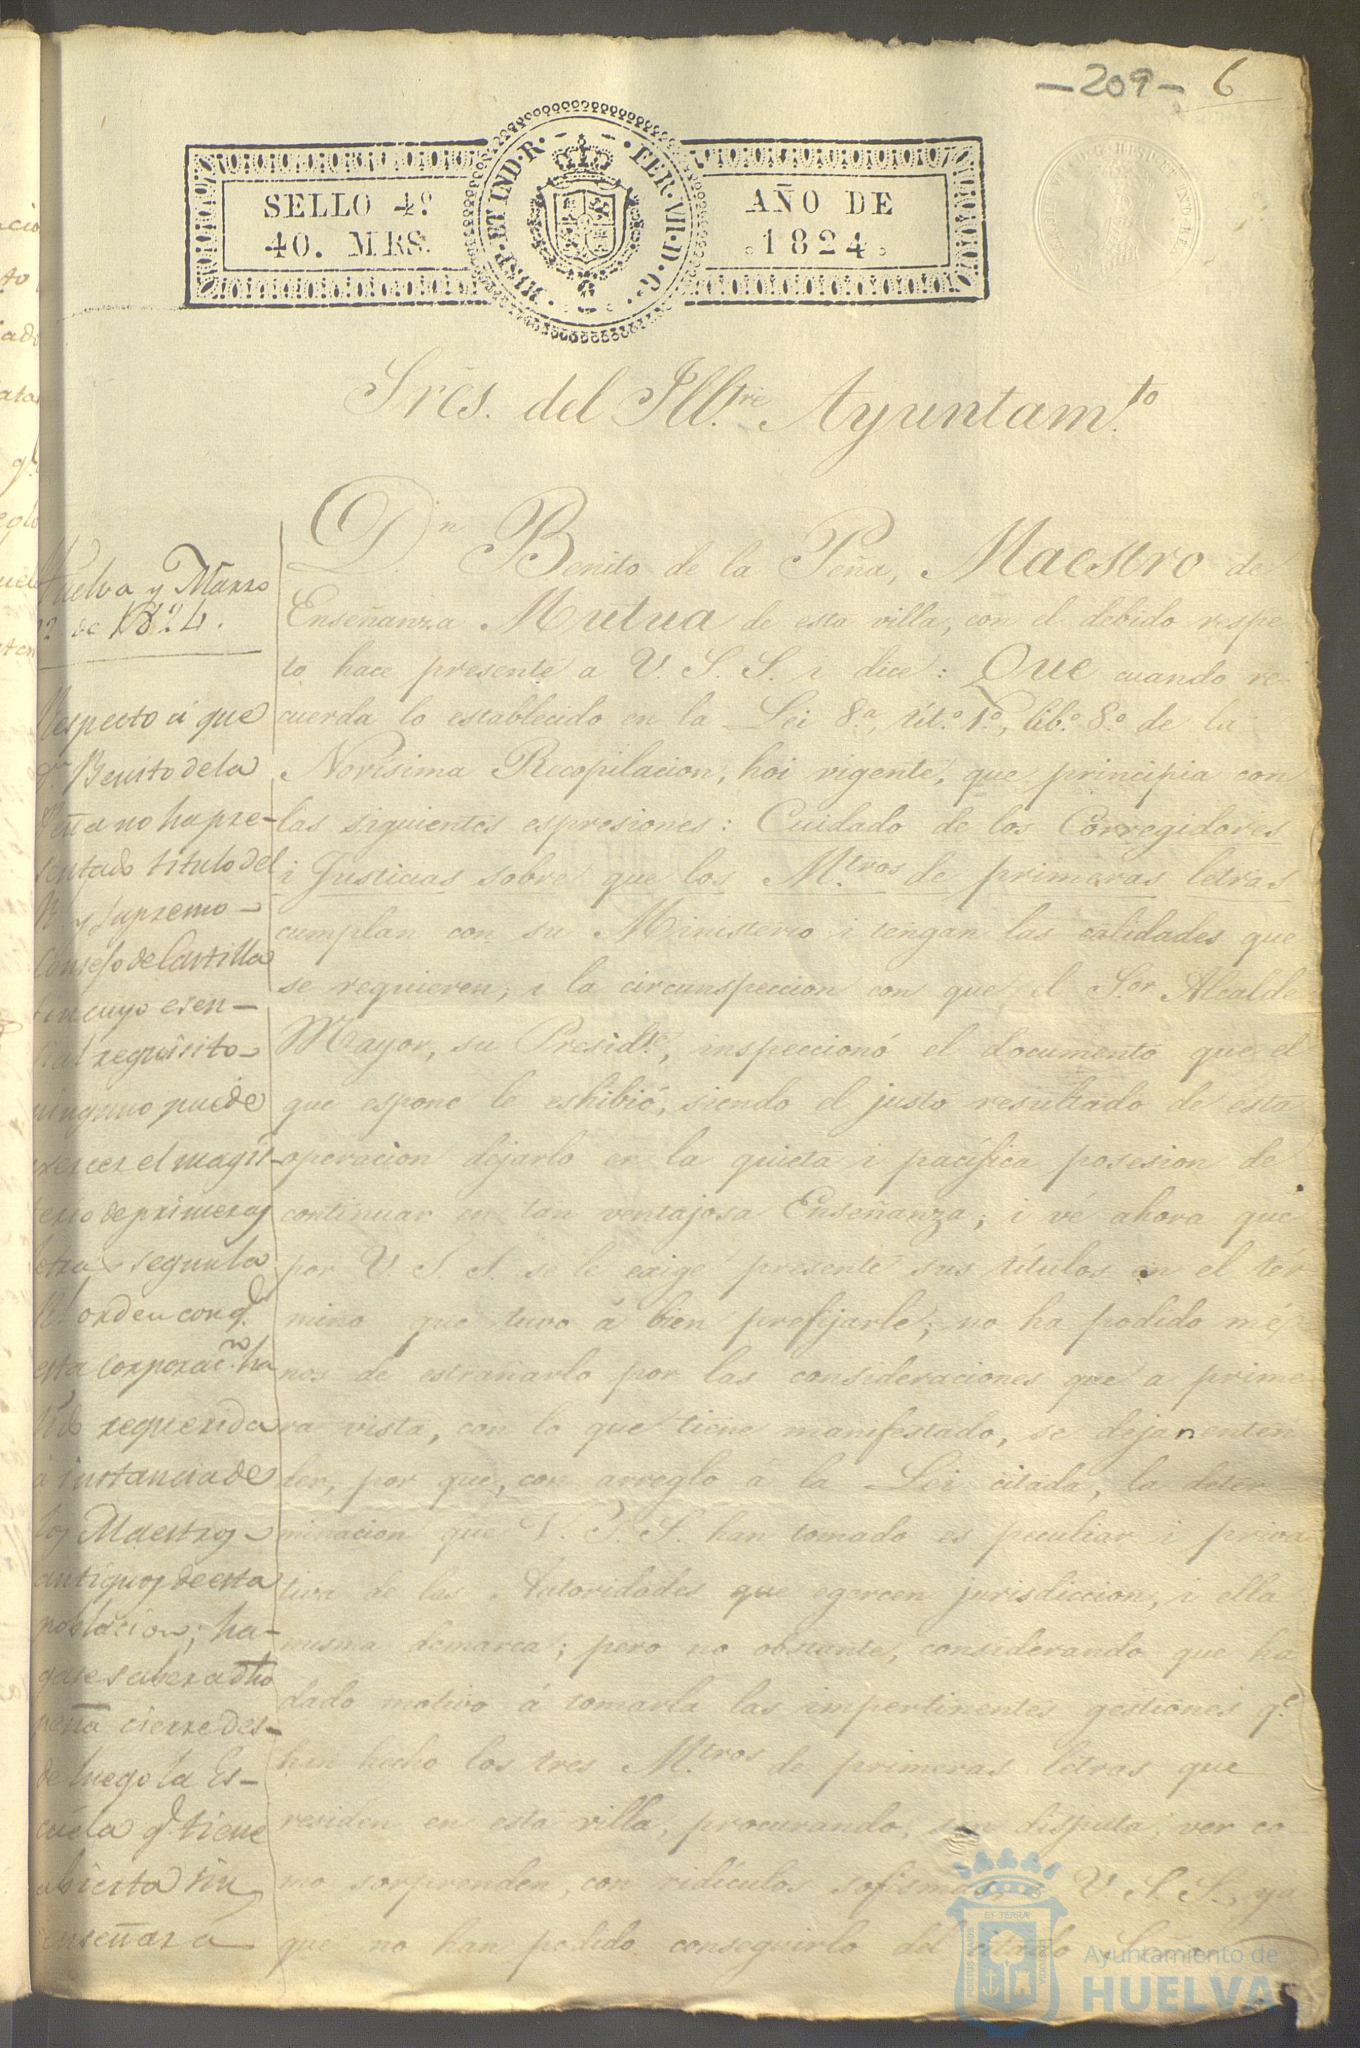 —209— 6
SELLO 4º
40. MRS.
HISP. ET IND. R. FER. VII. D. G.
AÑO DE
1824
Sres. del Ill.tre Ayuntam.to
Dn Benito de la Peña, Maestro de
Enseñanza Mutua de esta villa, con el debido respe-
to hace presente a V. S. S. i dice: Que cuando re-
cuerda lo establecido en la Lei 8.a, tít.o 1.o, lib.o 8.o de la
Novísima Recopilacion, hoi vigente, que principia con
las siguientes espresiones: Cuidado de los Corregidores
i Justicias sobre que los M.tros de primeras letras
cumplan con su Ministerio i tengan las calidades que
se requieren; i la circunspeccion con que el S.or Alcalde
Mayor, su Presid.te, inspeccionó el documento que el
que espone le eshibió, siendo el justo resultado de esta
operacion dejarlo en la quieta i pacífica posesion de
continuar en tan ventajosa Enseñanza; i vé ahora que
por V. S. S. se le exige presente sus títulos en el tér
mino que tuvo á bien prefijarle; no ha podido mé-
nos de estrañarlo por las consideraciones que a prime
ra vista, con lo que tiene manifestado, se dejan enten
der, por que, con arreglo á la Lei citada, la deter
minacion que V. S. S. han tomado es peculiar i priva
tiva de las Autoridades que egercen jurisdiccion, i ella
misma demarca; pero no obstante, considerando que ha
dado motivo á tomarla las impertinentes gestiones q.e
han hecho los tres M.tros de primeras letras que
residen en esta villa, procurando, sin disputa, ver co
mo sorprenden, con ridículos sofismas, a V. S. S., ya
que no han podido conseguirlo del citado
Huelva y Marzo
de 1824.
Respecto á que
Dn Benito de la
Peña no ha pre-
sentado titulo del
R.l y Supremo
Consejo de Castilla
sin cuyo esen-
cial requisito
ninguno puede
exercer el magis-
terio de primeras
letras segun la
R.l orden con q.e
esta corporac.n ha
sido requerida
á instancia de
los Maestros
antiguos de esta
poblacion; ha-
gase saber a dho
Peña cierre des-
de luego la Es-
cuela q.e tiene
abierta sin
enseñar a
ET TERRÆ
PORTUS MARIS
CUSTODIA
Ayuntamiento de
HUELVA